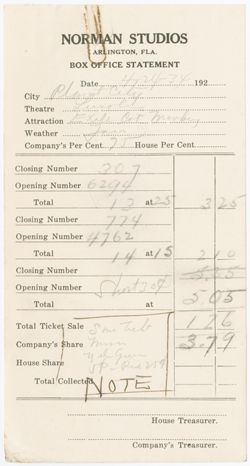 NORMAN STUDIOS
ARLINGTON, FLA.
BOX OFFICE STATEMENT
Date 4/24-24 192
City Plant City
Theatre
Attraction
Weather
Company's Per Cent. 75 House Per Cent.
Closing Number 307
Opening Number 6294
Total 13 at 25 3 25
Closing Number 774
Opening Number 4762
Total 14 at 15 2 10
Closing Number 5 35
Opening Number Short 30¢
Total at 5 05
Total Ticket Sale 1 26
Company's Share 3 79
House Share
Total Collected NOTE
House Treasurer.
Company's Treasurer.